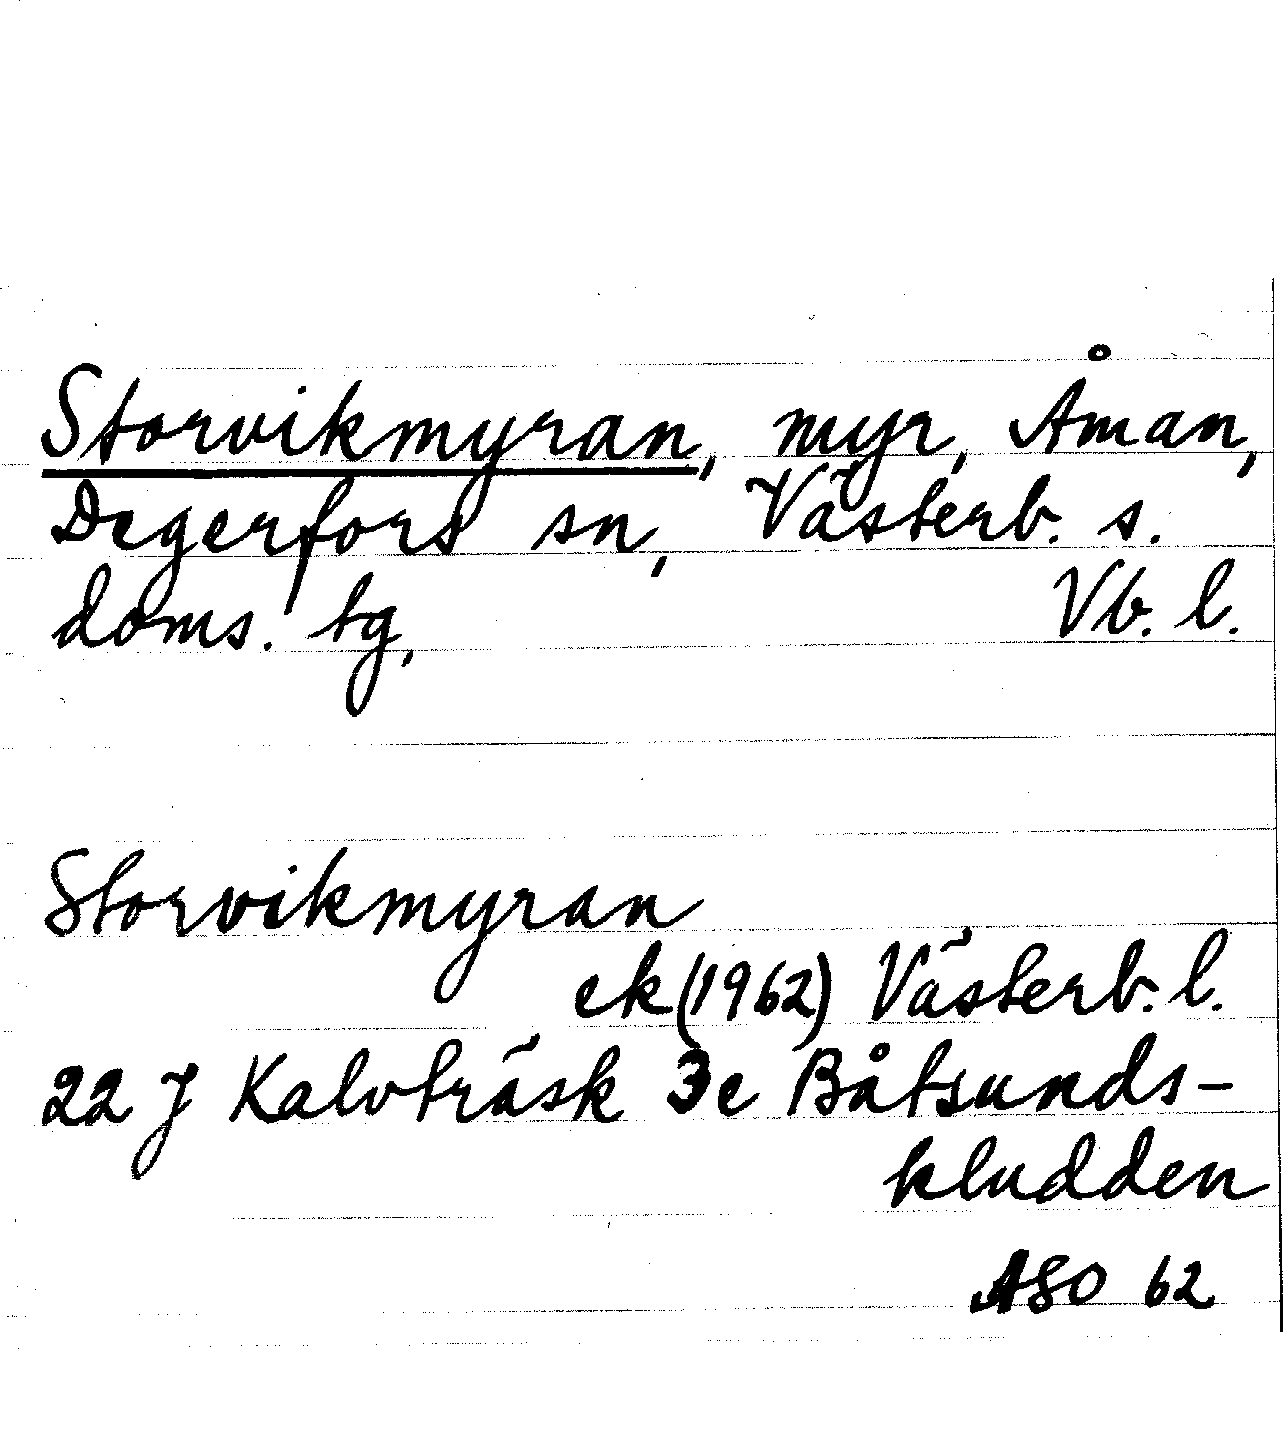 Storvikmyran, myr, Åman,
Degerfors sn, Västerb. s.
doms. tg, Vb. l.
Storvikmyran
ek (1962) Västerb. l.
22 J Kalvträsk 3e Båtsunds-
kludden
ASO 62